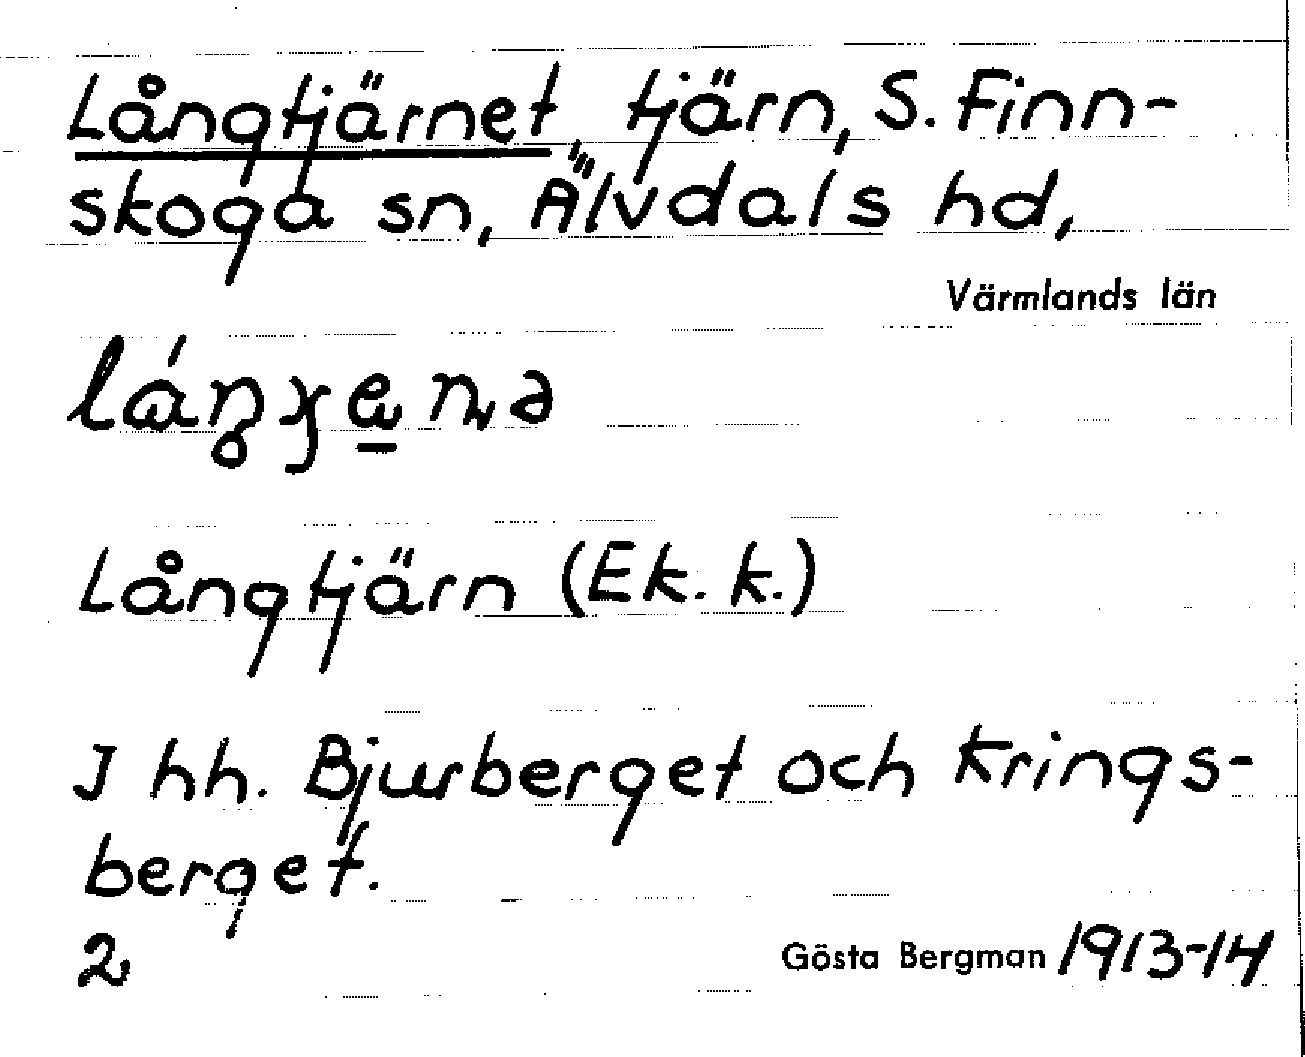 Långtjärnet, tjärn, S. Finn-
skoga sn, Älvdals hd,
Värmlands län
Långtjärn (Ek. k.)
I hh. Bjurberget och Krings-
berget.
2
Gösta Bergman 1913-14